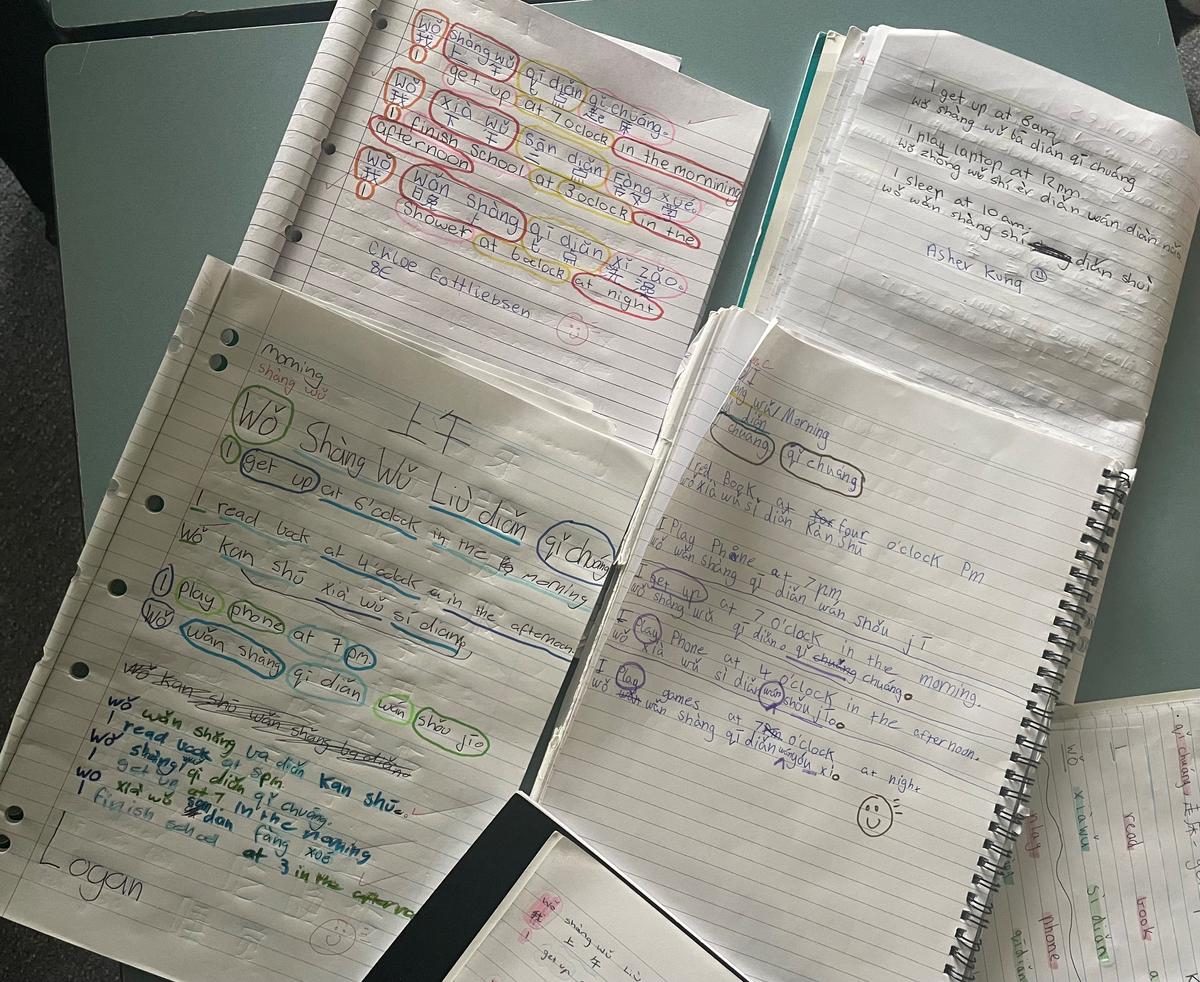 wǒ shàng wǔ qī diǎn qǐ chuáng.
我 上 午 七 点 起 床
I get up at 7oclock in the mornining
wǒ xià wǔ sān diǎn Fàng xué.
我 下 午 三 点 放 學
I finish School at 3oclock in the
afternoon
wǒ wǎn shàng qī diǎn xǐ zǎo.
我 晚 上 七 点 洗 澡
I shower at 6oclock at night
Chloe Gottliebsen
8C
I get up at 8am
wǒ shàng wǔ bā diǎn qǐ chuáng
I play laptop at 12pm
wǒ zhōng wǔ shí èr diǎn wán diàn nǎo
I sleep at 10am
wǒ wǎn shàng shí diǎn shuì
Asher Kung
morning
shàng wǔ
上午
Wǒ Shàng Wǔ Liù diǎn qǐ chuáng
I get up at 6'oclock in the morning
I read book at 4'oclock in the afternoon.
Wǒ Kàn shū xià wǔ sì diǎn
I play phone at 7 pm
Wǒ wǎn shàng qī diǎn wán shǒu jīo
Wǒ Kàn shū wǎn shàng ba diǎn
wǒ wǎn shàng wu diǎn kàn shū.
I read book at 5pm
Wǒ shàng wǔ qī diǎn qǐ chuáng.
I get up at 7 in the morning
Wo xià wǔ dian fàng xué
I finish school at 3 in the afterno
Logan
wǔ/ Morning
diǎn
chuáng qǐ chuáng
read Book at four o'clock Pm
wǒ xià wǔ sì diǎn Kàn shū
I Play Phone at 7pm
wǒ wǎn shàng qī diǎn wán shǒu jī
I get up at 7 o'clock in the morning.
wǒ shàng wǔ qī diǎn qǐ chuáng chuáng.
I Play Phone at 4 o'clock in the afternoon.
wǒ xià wǔ sì diǎn wán shǒu jīo
I Play games at 7pm o'clock at night
wǒ wǎn shàng qī diǎn wán yóu xì.
wǒ shàng wǔ Liù
我 上 午
I get up
qǐ chuáng
I read book
wǒ xiàwǔ sì diǎn
play phone
qī diǎn